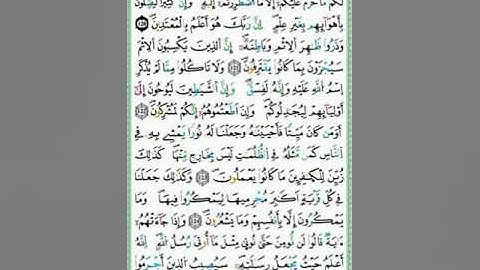 لَكُم مَّا حَرَّمَ عَلَيْكُمْ إِلَّا مَا اَضْطُرِرْتُمْ إِلَيْهِ وَإِنَّ كَثِيرًا لَّيَضِلُّونَ
بِأَهْوَآئِهِم بِغَيْرِ عِلْمٍ إِنَّ رَبَّكَ هُوَ أَعْلَمُ بِالْمُعْتَدِينَ
وَذَرُوا ظَٰهِرَ اَلْاِثْمِ وَبَاطِنَهُ إِنَّ اَلذِينَ يَكْسِبُونَ اَلْاِثْمَ
سَيُجْزَوْنَ بِمَا كَانُوا يَقْتَرِفُونَ وَلَا تَاكُلُوا مِمَّا لَمْ يُذْكَرِ
اِسْمُ اُللَّهِ عَلَيْهِ وَإِنَّهُ لَفِسْقٌ وَإِنَّ اَلشَّيَٰطِينَ لَيُوحُونَ إِلَىٰ
أَوْلِيَآئِهِمْ لِيُجَٰدِلُوكُمْ وَإِنَ اَطَعْتُمُوهُمْ إِنَّكُمْ لَمُشْرِكُونَ
أَوَمَن كَانَ مَيِّتًا فَأَحْيَيْنَٰهُ وَجَعَلْنَا لَهُ نُورًا يَمْشِي بِهِ فِي
اِلنَّاسِ كَمَن مَّثَلُهُ فِي اِلظُّلُمَٰتِ لَيْسَ بِخَارِجٍ مِّنْهَا كَذَٰلِكَ
زُيِّنَ لِلْكَٰفِرِينَ مَا كَانُوا يَعْمَلُونَ وَكَذَٰلِكَ جَعَلْنَا
فِي كُلِّ قَرْيَةٍ اَكَٰبِرَ مُجْرِمِيهَا لِيَمْكُرُوا فِيهَا وَمَا
يَمْكُرُونَ إِلَّا بِأَنفُسِهِمْ وَمَا يَشْعُرُونَ وَإِذَا جَآءَتْهُمْ
ءَايَةٌ قَالُوا لَن نُّومِنَ حَتَّىٰ نُوتَىٰ مِثْلَ مَا أُوتِيَ رُسُلُ اُللَّهِ اِللَّهُ
أَعْلَمُ حَيْثُ يَجْعَلُ رِسَٰلَٰتِهِ سَيُصِيبُ اُلذِينَ أَجْرَمُوا